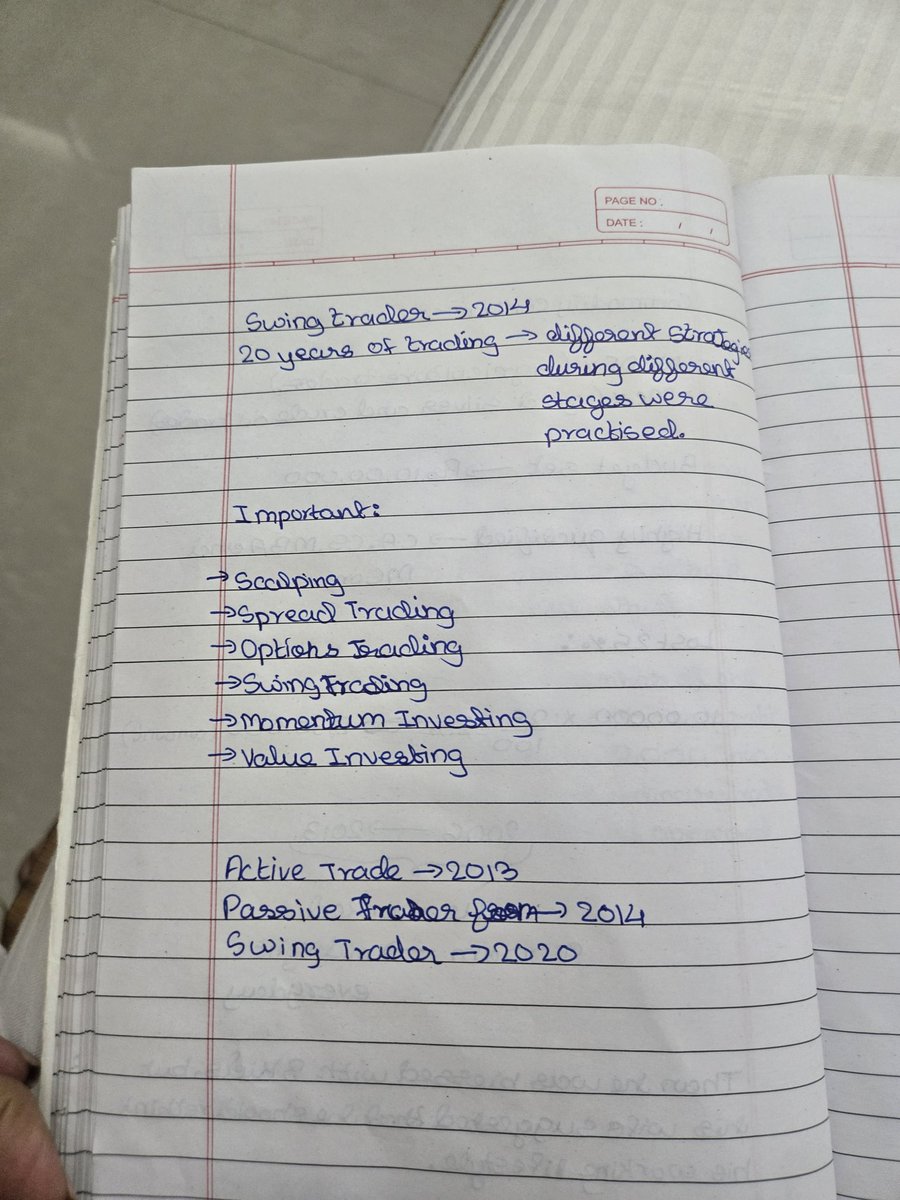 PAGE NO :
DATE : / /
Swing trader → 2014
20 years of trading → different strategies
during different
stages were
practised.
Important:
→ Scalping
→ Spread Trading
→ Options Trading
→ Swing Trading
→ Momentum Investing
→ Value Investing
Active Trade → 2013
Passive Trader from → 2014
Swing Trader → 2020